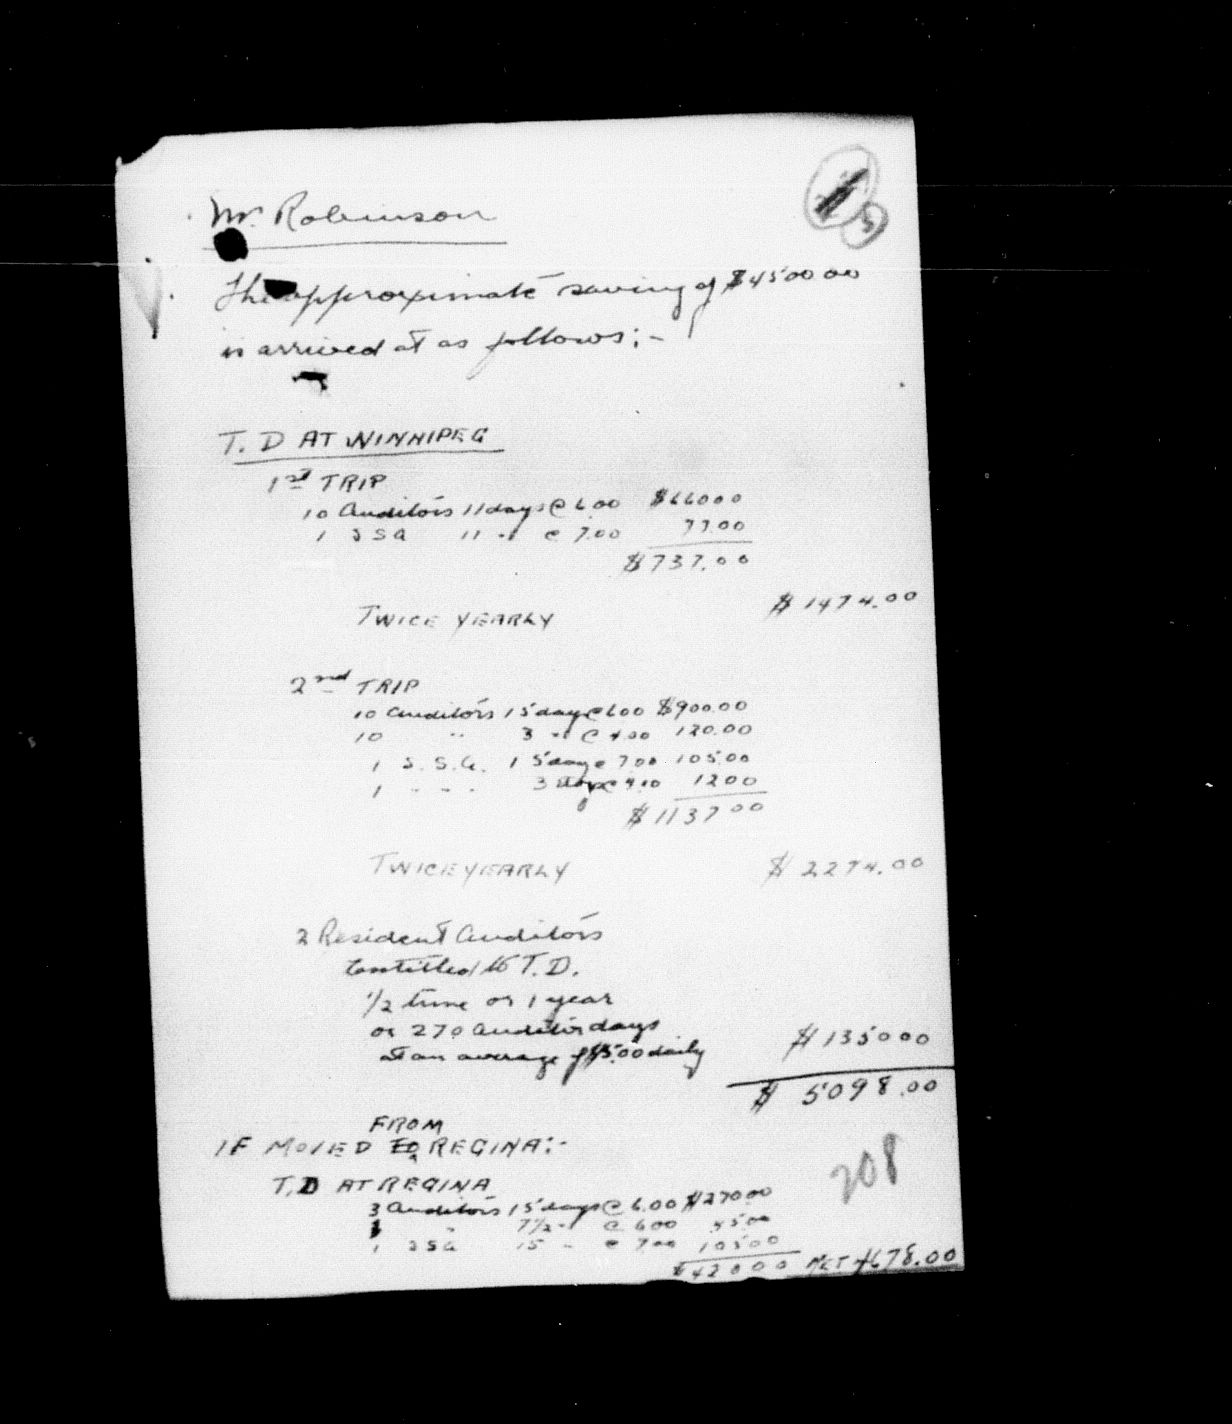 Mr. Robinson
5
The approximate saving of $4500 00
is arrived at as follows:-
T. D AT WINNIPEG
1st TRIP
10 Auditors 11 days @ 6.00 $660 00
1 SSA 11 " @ 7.00 77.00
$737.00
TWICE YEARLY $1474.00
2nd TRIP
10 Auditors 15 days @ 6.00 $900.00
10 " 3 " @ 4.00 120.00
1 S.S.A. 15 days @ 7.00 105.00
1 " " " 3 days @ 4.00 12 00
$1137 00
TWICE YEARLY $2274.00
2 Resident Auditors
Entitled to T.D.
1/2 time or 1 year
or 270 Auditor days
at an average of $5.00 daily $1350 00
$5098.00
FROM
IF MOVED TO REGINA:-
208
T.D AT REGINA
3 Auditors 15 days @ 6.00 $270 00
1 " 7 1/2 " @ 6 00 45 00
1 SSA 15 " @ 7.00 105 00
$420 00 NET 4678.00